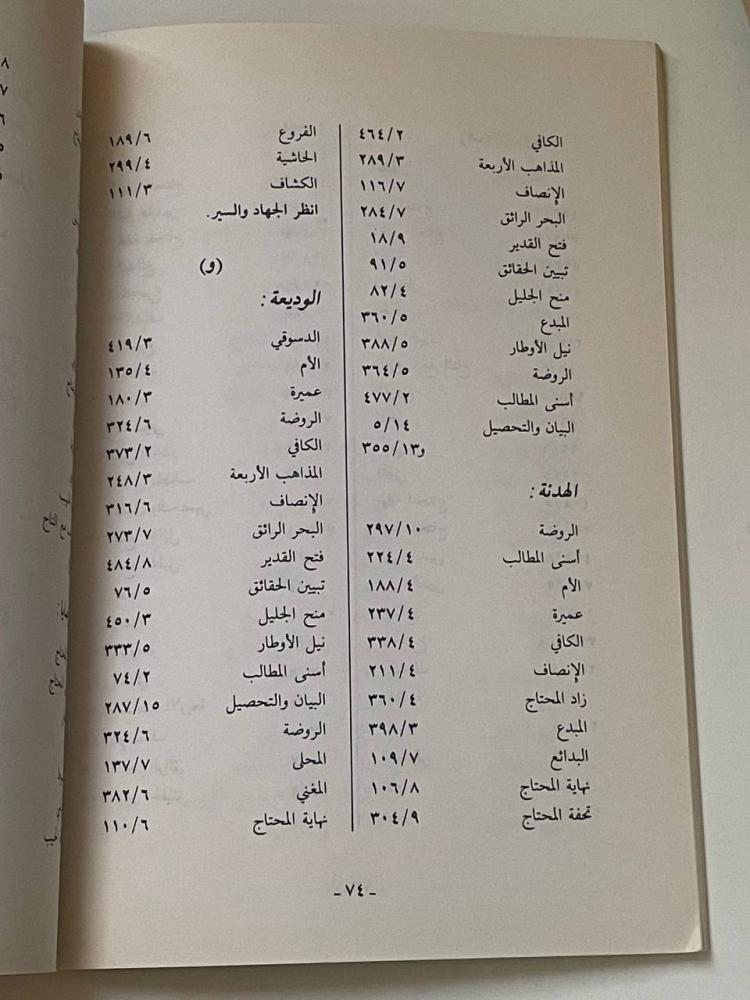 الكافي ٤٦٤/٢
المذاهب الأربعة ٢٨٩/٣
الإنصاف ١١٦/٧
البحر الرائق ٢٨٤/٧
فتح القدير ١٨/٩
تبيين الحقائق ٩١/٥
منح الجليل ٨٢/٤
المبدع ٣٦٠/٥
نيل الأوطار ٣٨٨/٥
الروضة ٣٦٤/٥
أسنى المطالب ٤٧٧/٢
البيان والتحصيل ٥/١٤
و٣٥٥/١٣
الهدنة :
الروضة ٢٩٧/١٠
أسنى المطالب ٢٢٤/٤
الأم ١٨٨/٤
عميرة ٢٣٧/٤
الكافي ٣٣٨/٤
الإنصاف ٢١١/٤
زاد المحتاج ٣٦٠/٤
المبدع ٣٩٨/٣
البدائع ١٠٩/٧
نهاية المحتاج ١٠٦/٨
تحفة المحتاج ٣٠٤/٩
الفروع ١٨٩/٦
الحاشية ٢٩٩/٤
الكشاف ١١١/٣
انظر الجهاد والسير.
(و)
الوديعة :
الدسوقي ٤١٩/٣
الأم ١٣٥/٤
عميرة ١٨٠/٣
الروضة ٣٢٤/٦
الكافي ٣٧٣/٢
المذاهب الأربعة ٢٤٨/٣
الإنصاف ٣١٦/٦
البحر الرائق ٢٧٣/٧
فتح القدير ٤٨٤/٨
تبيين الحقائق ٧٦/٥
منح الجليل ٤٥٠/٣
نيل الأوطار ٣٣٣/٥
أسنى المطالب ٧٤/٢
البيان والتحصيل ٢٨٧/١٥
الروضة ٣٢٤/٦
المحلى ١٣٧/٧
المغني ٣٨٢/٦
نهاية المحتاج ١١٠/٦
- ٧٤ -